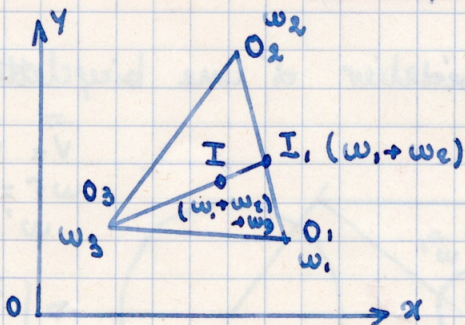 Y
ω2
O2
I
I1 (ω1+ω2)
O3
(ω1+ω2)
+ω3
ω3
O1
ω1
O
x